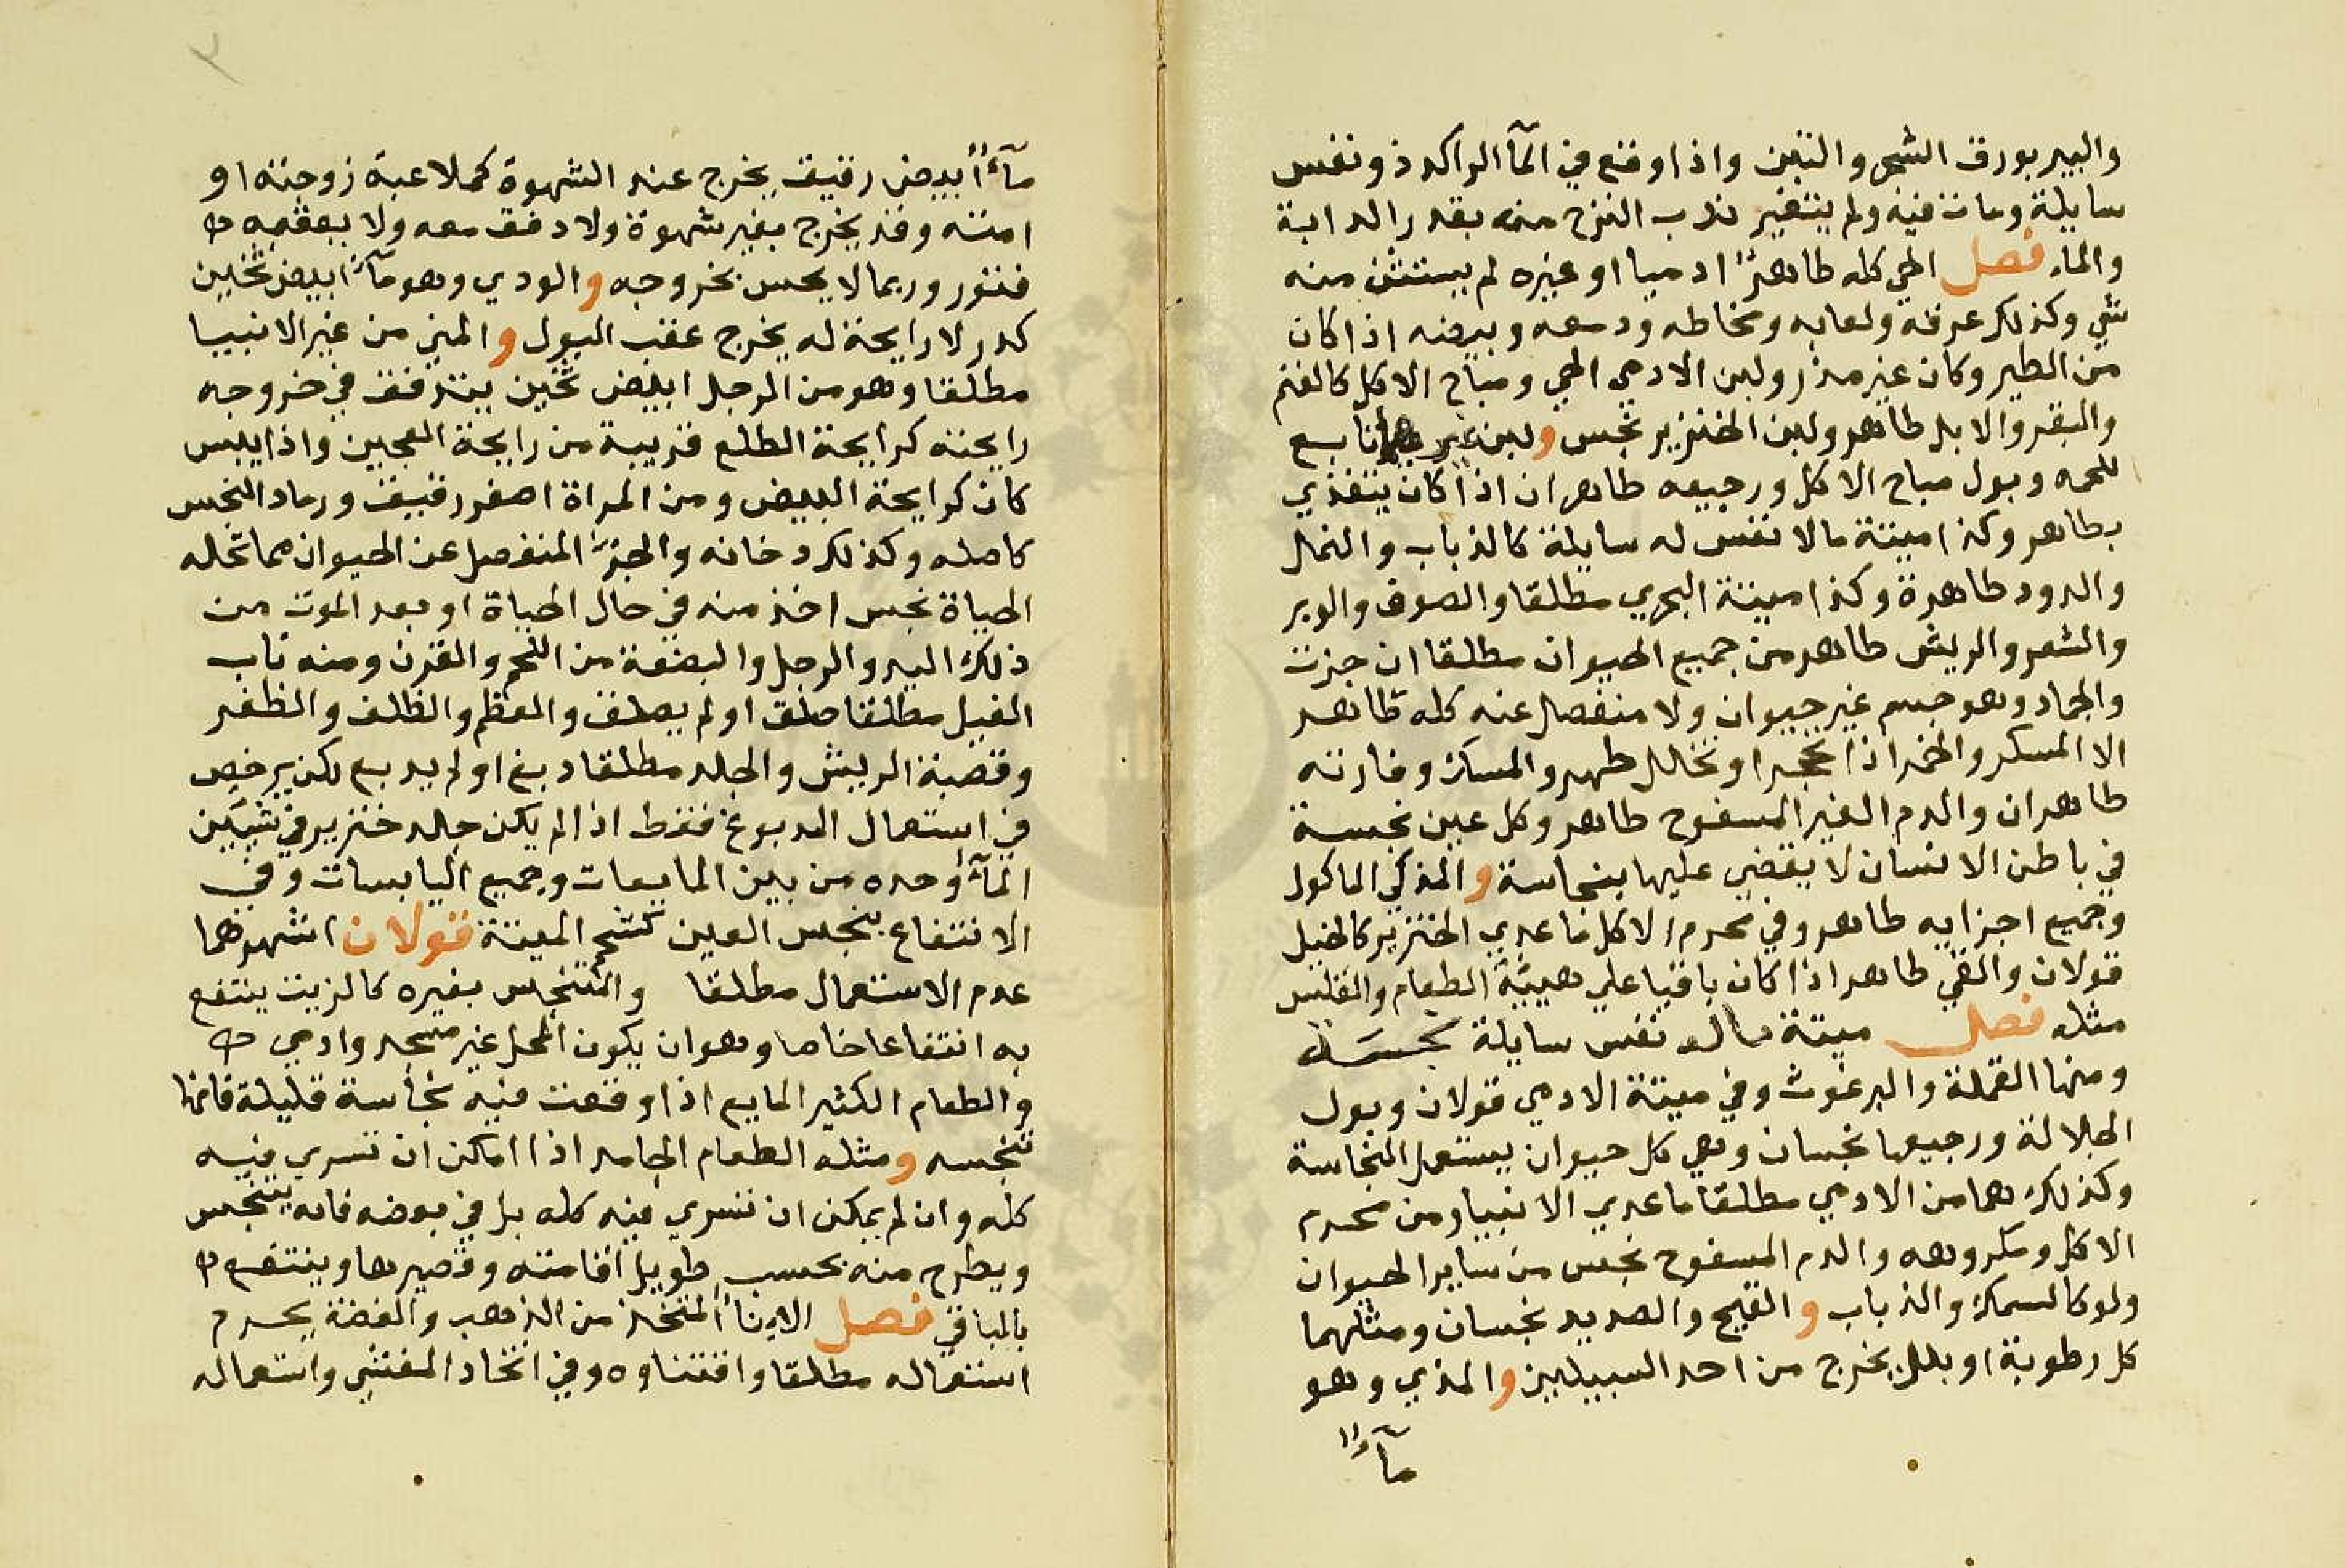 والبير بورق الشجر والتبن واذا وقع في المآ الراكد ذو نفس
سايلة ومات فيه ولم يتغير ندب النزح منه بقدر الدابة
والماء فصل الحي كله طاهرًا ادميا او غيره لم يستثن منه
شي وكذلك عرقه ولعابه ومخاطه ودمعه وبيضه اذا كان
من الطير وكان غير مذر ولبن الادمي الحي ومباح الاكل كالغنم
والبقر والابل طاهر ولبن الخنزير نجس ولبن غيرهما تابع
للحمه وبول مباح الاكل ورجيعه طاهران اذا كان يتغذي
بطاهر وكذا ميتة ما لا نفس له سايلة كالذباب والنمل
والدود طاهرة وكذا ميتة البحري مطلقا والصوف والوبر
والشعر والريش طاهر من جميع الحيوان مطلقا ان جزت
والجماد وهو جسم غير حيوان ولا منفصل عنه كله طاهر
الا المسكر والخمر اذا تحجر او تخلل طهر والمسك وفارته
طاهران والدم الغير المسفوح طاهر وكل عين نجسة
في باطن الانسان لا يقضي عليها بنجاسة والمذكي الماكول
وجميع اجزايه طاهر وفي محرم الاكل ما عدي الخنزير كالخيل
قولان والقي طاهر اذا كان باقيا علي هيية الطعام والقلس
مثله فصل ميتة ماله نفس سايلة نجسة
ومنها القملة والبرغوث وفي ميتة الادمي قولان وبول
الجلالة ورجيعها نجسان وهي كل حيوان يستعمل النجاسة
وكذلك هما من الادمي مطلقا ما عدي الانبيا ومن محرم
الاكل ومكروهه والدم المسفوح نجس من ساير الحيوان
ولو كالسمك والذباب والقيح والصديد نجسان ومثلهما
كل رطوبة او بلل يخرج من احد السبيلين والمذي وهو
مآءً
٢
مآءً ابيض رقيق يخرج عند الشهوة كملاعبة زوجته او
امته وقد يخرج بغير شهوة ولا دفق معه ولا يعقبه
فتور وربما لا يحس بخروجه والودي وهو مآءً ابيض ثخين
كدر لا رايحة له يخرج عقب البول والمني من غير الانبيا
مطلقا وهو من الرجل ابيض ثخين يتدفق في خروجه
رايحته كرايحة الطلع قريبة من رايحة العجين واذا يبس
كان كرايحة البيض ومن المراة اصفر رقيق ورماد النجس
كاصله وكذلك دخانه والجزء المنفصل عن الحيوان مما تحله
الحياة نجس اخذ منه في حال الحياة او بعد الموت من
ذلك اليد والرجل والبضعة من اللحم والقرن ومنه ناب
الفيل مطلقا صلق او لم يصلق والعظم والظلف والظفر
وقصبة الريش والجلد مطلقا دبغ او لم يدبغ لكن يرخص
في استعمال المدبوغ فقط اذا لم يكن جلد خنزير في شيين
المآء وحده من بين المايعات وجميع اليابسات وفي
الانتفاع بنجس العين كشحم الميتة قولان اشهرهما
عدم الاستعمال مطلقا والمتنجس بغيره كالزيت ينتفع
به انتفاعا خاصا وهو ان يكون المحل غير مسجد وادمي
والطعام الكثير المايع اذا وقعت فيه نجاسة قليلة فانها
تنجسه ومثله الطعام الجامد اذا امكن ان تسري فيه
كله وان لم يمكن ان تسري فيه كله بل في بعضه فانه يتنجس
ويطرح منه بحسب طويل اقامته وقصيرها وينتفع
بالباقي فصل الاناءُ المتخذ من الذهب والفضة يحرم
استعماله مطلقا واقتناوه وفي اتخاذ المغشي واستعماله